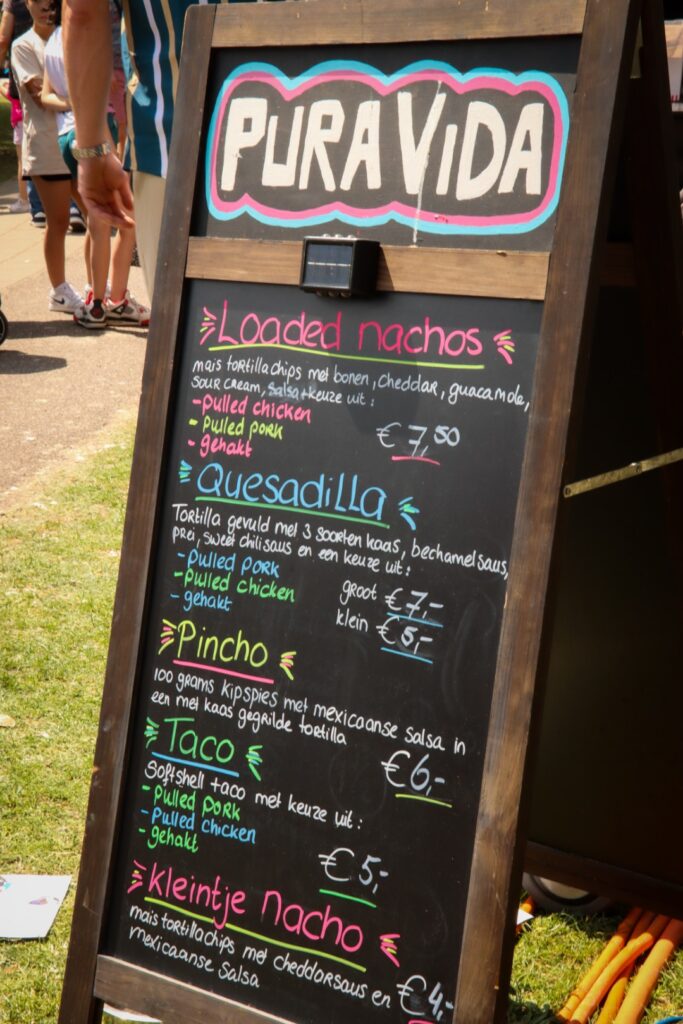 PURA VIDA
Loaded nachos
mais tortillachips met bonen, cheddar, guacamole,
sour cream, salsa + keuze uit:
- pulled chicken
- pulled pork
- gehakt
€ 7,50
Quesadilla
Tortilla gevuld met 3 soorten kaas, bechamelsaus,
prei, sweet chilisaus en een keuze uit:
- pulled pork
- pulled chicken
- gehakt
groot €7,-
klein €5,-
Pincho
100 grams kipspies met mexicaanse salsa in
een met kaas gegrilde tortilla
€6,-
Taco
Softshell taco met keuze uit:
- pulled pork
- pulled chicken
- gehakt
€5,-
kleintje nacho
mais tortillachips met cheddarsaus en
mexicaanse salsa
€4,-